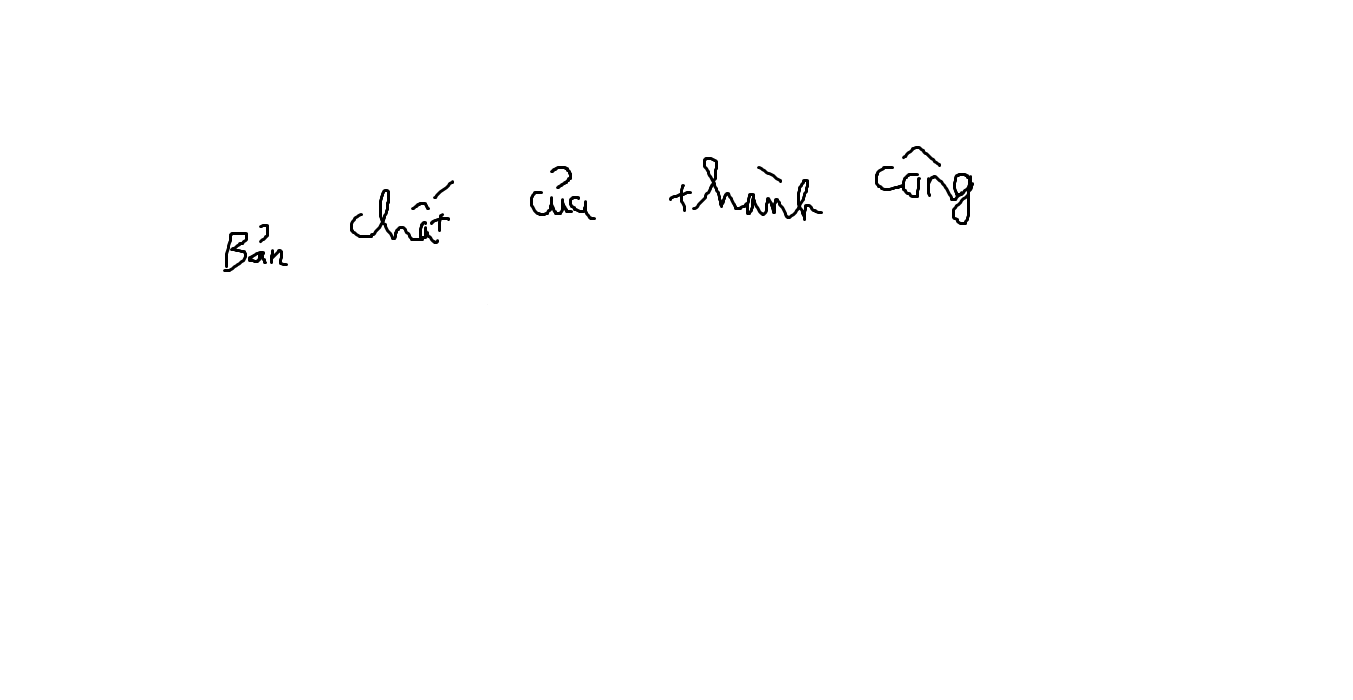 Bản chất của thành công